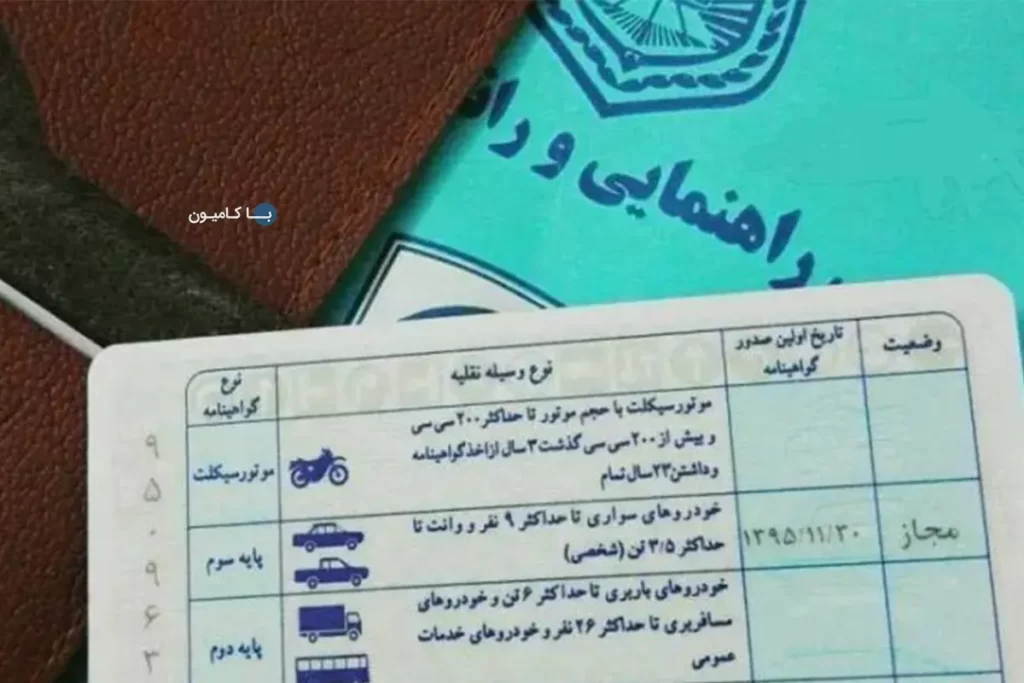 راهنمایی و
بــا کامیون
وضعیت
تاریخ اولین صدور
گواهینامه
نوع وسیله نقلیه
نوع
گواهینامه
موتورسیکلت با حجم موتور تا حداکثر ۲۰۰ سی سی
و بیش از ۲۰۰ سی سی گذشت ۳ سال از اخذ گواهینامه
و داشتن ۲۳ سال تمام
موتورسیکلت
مجاز
۱۳۹۵/۱۱/۳۰
خودروهای سواری تا حداکثر ۹ نفر و وانت تا
حداکثر ۳/۵ تن (شخصی)
پایه سوم
خودروهای باربری تا حداکثر ۶ تن و خودروهای
مسافربری تا حداکثر ۲۶ نفر و خودروهای خدمات
عمومی
پایه دوم
۹
۵
۰
۹
۶
۳